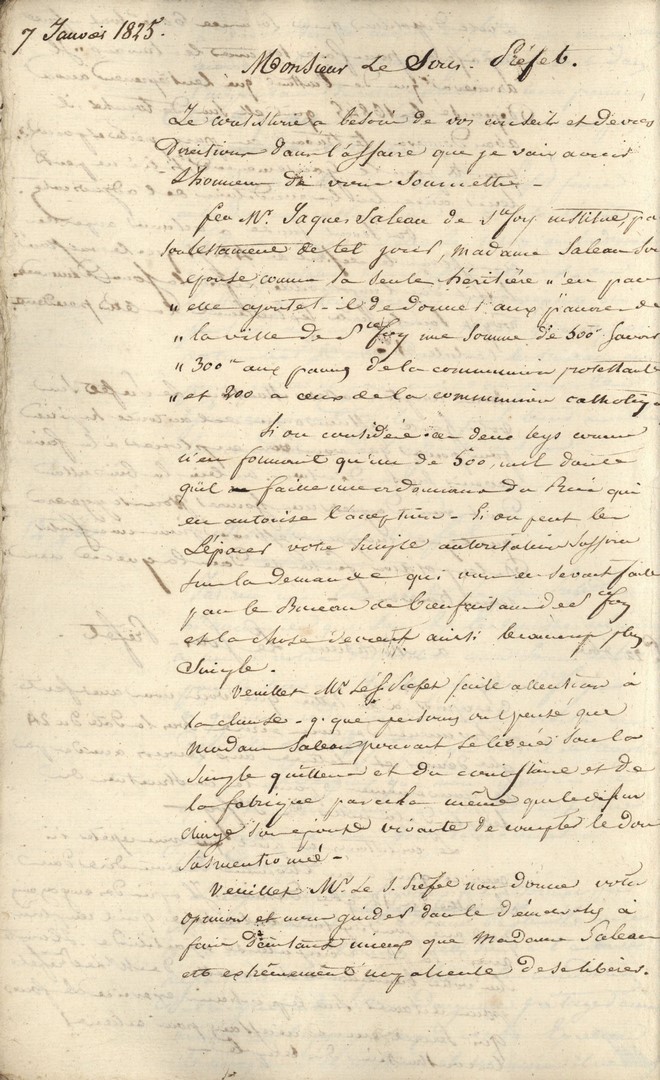 7 Janvier 1825.
Monsieur Le Sous-Préfet.
Le consistoire a besoin de vos conseils et de vos
Directions dans l'affaire que je vais avoir
L'honneur de vous soumettre -
feu Mr. Jaques Saleau de Ste foy institue, par
son testament de tel jour, Madame Saleau Son
épouse, comme sa seule héritière "en par
" elle ajoutet-il de donner aux pauvres de
" la ville de Ste foy une somme de 500 Savoir
" 300 aux pauvres de la communion protestante
" et 200 a ceux de la communion catholiq
Si on considère ces deux legs comme
n'en formant qu'un de 500, nul doute
qu'il faille une ordonnance du Roi qui
en autorise l'acception - Si on peut les
Séparer votre simple autorisation suffira
sur la demande qui vous en serait faite
par le Bureau de bienfaisance de Ste foy
et la chose devient ainsi beaucoup plus
Simple.
Veuillez Mr. Le S. Préfet faire attention à
la clause - q. que personnes ont pensé que
Madame Saleau pouvait se libérer sous la
simple quittance et du consistoire et de
la fabrique par cela même que le défunt
charge son épouse vivante de compter le don
susmentionné -
Veuillez Mr. Le S. Préfet nous donner votre
opinion et nous guider dans les démarches à
faire d'autant mieux que Madame Saleau
est extrêmement impatiente de se libérer.